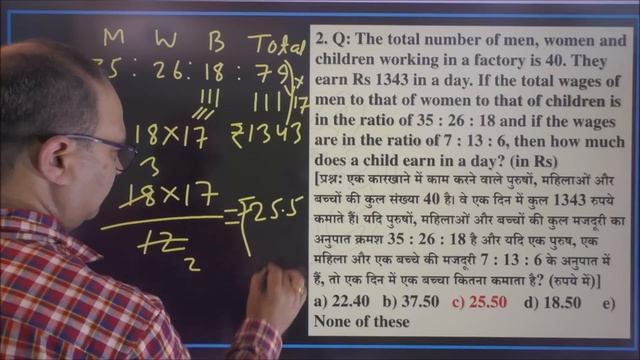 M W B Total
35 : 26 : 18 : 79 ×
||| ||| 17
18 × 17 ₹1343
3
18 × 17
= ₹25.5
12
2
2. Q: The total number of men, women and
children working in a factory is 40. They
earn Rs 1343 in a day. If the total wages of
men to that of women to that of children is
in the ratio of 35 : 26 : 18 and if the wages
are in the ratio of 7 : 13 : 6, then how much
does a child earn in a day? (in Rs)
[प्रश्न: एक कारखाने में काम करने वाले पुरुषों, महिलाओं और
बच्चों की कुल संख्या 40 है। वे एक दिन में कुल 1343 रुपये
कमाते हैं। यदि पुरुषों, महिलाओं और बच्चों की कुल मजदूरी का
अनुपात क्रमश 35 : 26 : 18 है और यदि एक पुरुष, एक
महिला और एक बच्चे की मजदूरी 7 : 13 : 6 के अनुपात में
हैं, तो एक दिन में एक बच्चा कितना कमाता है? (रुपये में)]
a) 22.40 b) 37.50 c) 25.50 d) 18.50 e)
None of these